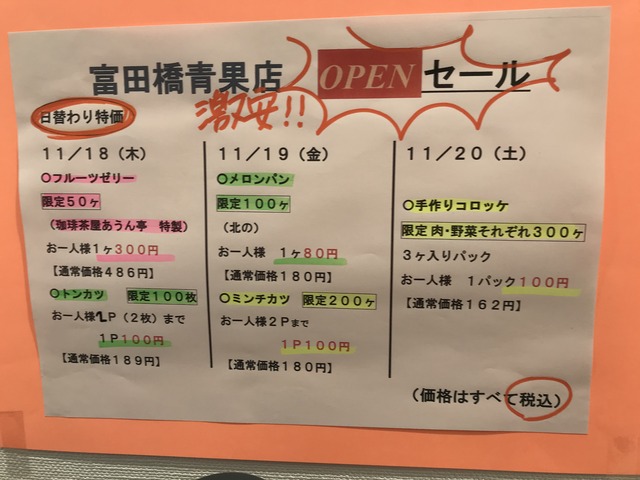 富田橋青果店 OPENセール
激安!!
日替わり特価
11/18（木）
○フルーツゼリー
限定50ヶ
（珈琲茶屋あうん亭 特製）
お一人様1ヶ300円
【通常価格486円】
○トンカツ 限定100枚
お一人様2P（2枚）まで
1P100円
【通常価格189円】
11/19（金）
○メロンパン
限定100ヶ
（北の）
お一人様 1ヶ80円
【通常価格180円】
○ミンチカツ 限定200ヶ
お一人様2Pまで
1P100円
【通常価格180円】
11/20（土）
○手作りコロッケ
限定肉・野菜それぞれ300ヶ
3ヶ入りパック
お一人様 1パック100円
【通常価格162円】
（価格はすべて税込）